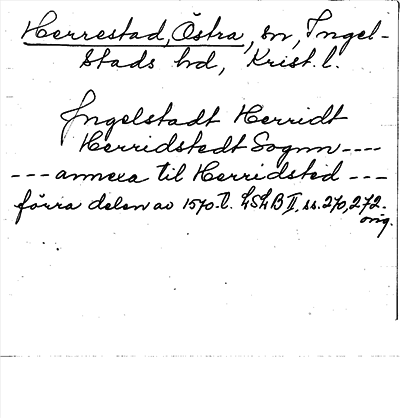 Herrestad, Östra, sn, Ingel-
stads hd, Krist. l.
Jngelstadt Herridt
Herridstedt Sognn ----
--- annexa til Herridsted ---
förra delen av 1570-t. LSLB II, ss. 270, 272.
orig.